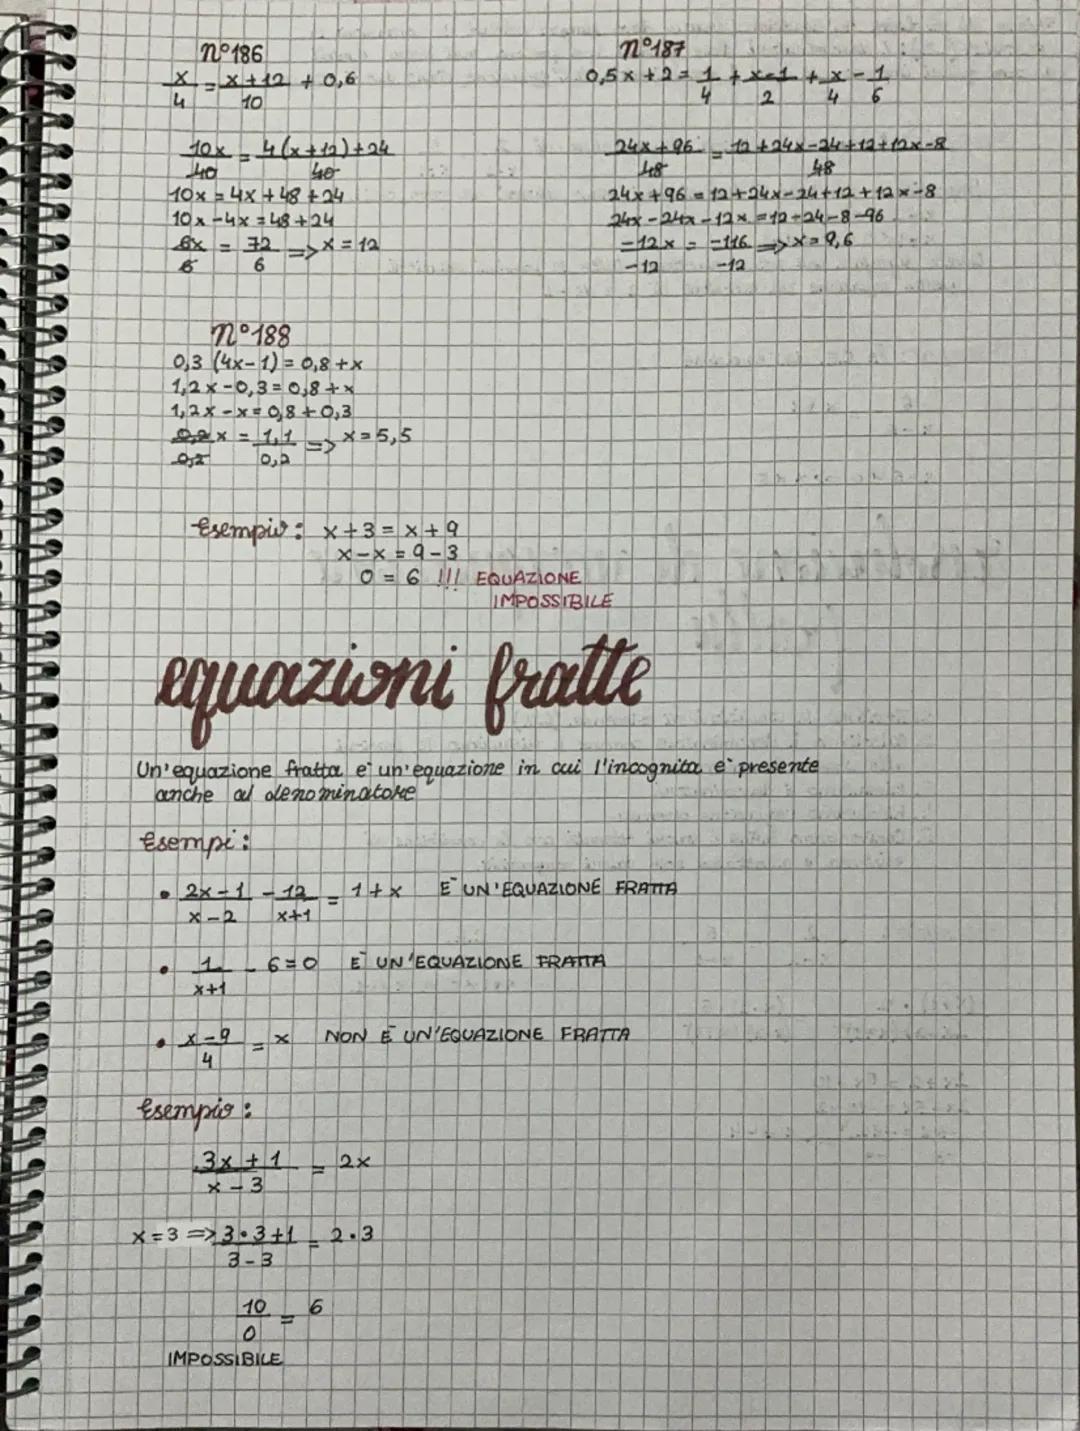 n°186
x/4 = x+12/10 + 0,6
10x/40 = 4(x+12)+24/40
10x = 4x+48+24
10x-4x = 48+24
6x/6 = 72/6 => x = 12
n°187
0,5x+2 = 1/4 + x-1/2 + x/4 - 1/6
24x+96/48 = 12+24x-24+12+12x-8/48
24x+96 = 12+24x-24+12+12x-8
24x-24x-12x = 12-24-8-96
-12x/-12 = -116/-12 => x = 9,6
n°188
0,3 (4x-1) = 0,8+x
1,2x-0,3 = 0,8+x
1,2x-x = 0,8+0,3
0,2x/0,2 = 1,1/0,2 => x = 5,5
Esempio: x+3 = x+9
x-x = 9-3
0 = 6 !!! EQUAZIONE
IMPOSSIBILE
equazioni fratte
Un'equazione fratta è un'equazione in cui l'incognita è presente
anche al denominatore
Esempi:
• 2x-1/x-2 - 12/x+1 = 1+x È UN'EQUAZIONE FRATTA
• 1/x+1 - 6=0 È UN'EQUAZIONE FRATTA
• x-9/4 = x NON È UN'EQUAZIONE FRATTA
Esempio:
3x+1/x-3 = 2x
x=3 => 3•3+1/3-3 = 2•3
10/0 = 6
IMPOSSIBILE